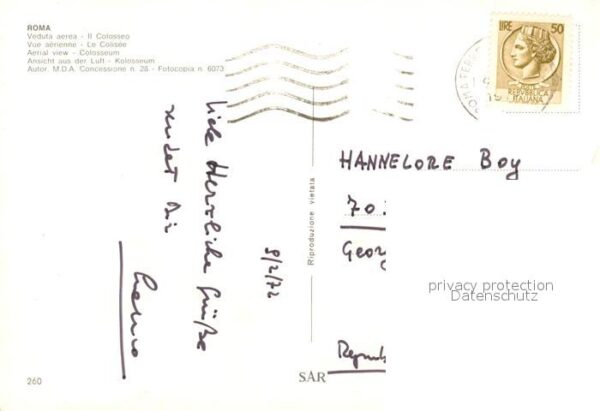 ROMA
Veduta aerea - Il Colosseo
Vue aérienne - Le Colisée
Aerial view - Colosseum
Ansicht aus der Luft - Kolosseum
Autor. M.D.A. Concessione n. 26 - Fotocopia n. 6073
LIRE 50
REPVBBLICA
ITALIANA
Viele Herzliche Grüße
sendet Dir
8/2/72
Riproduzione vietata
HANNELORE Boy
70
Georg
Repub
privacy protection
Datenschutz
260
SAR